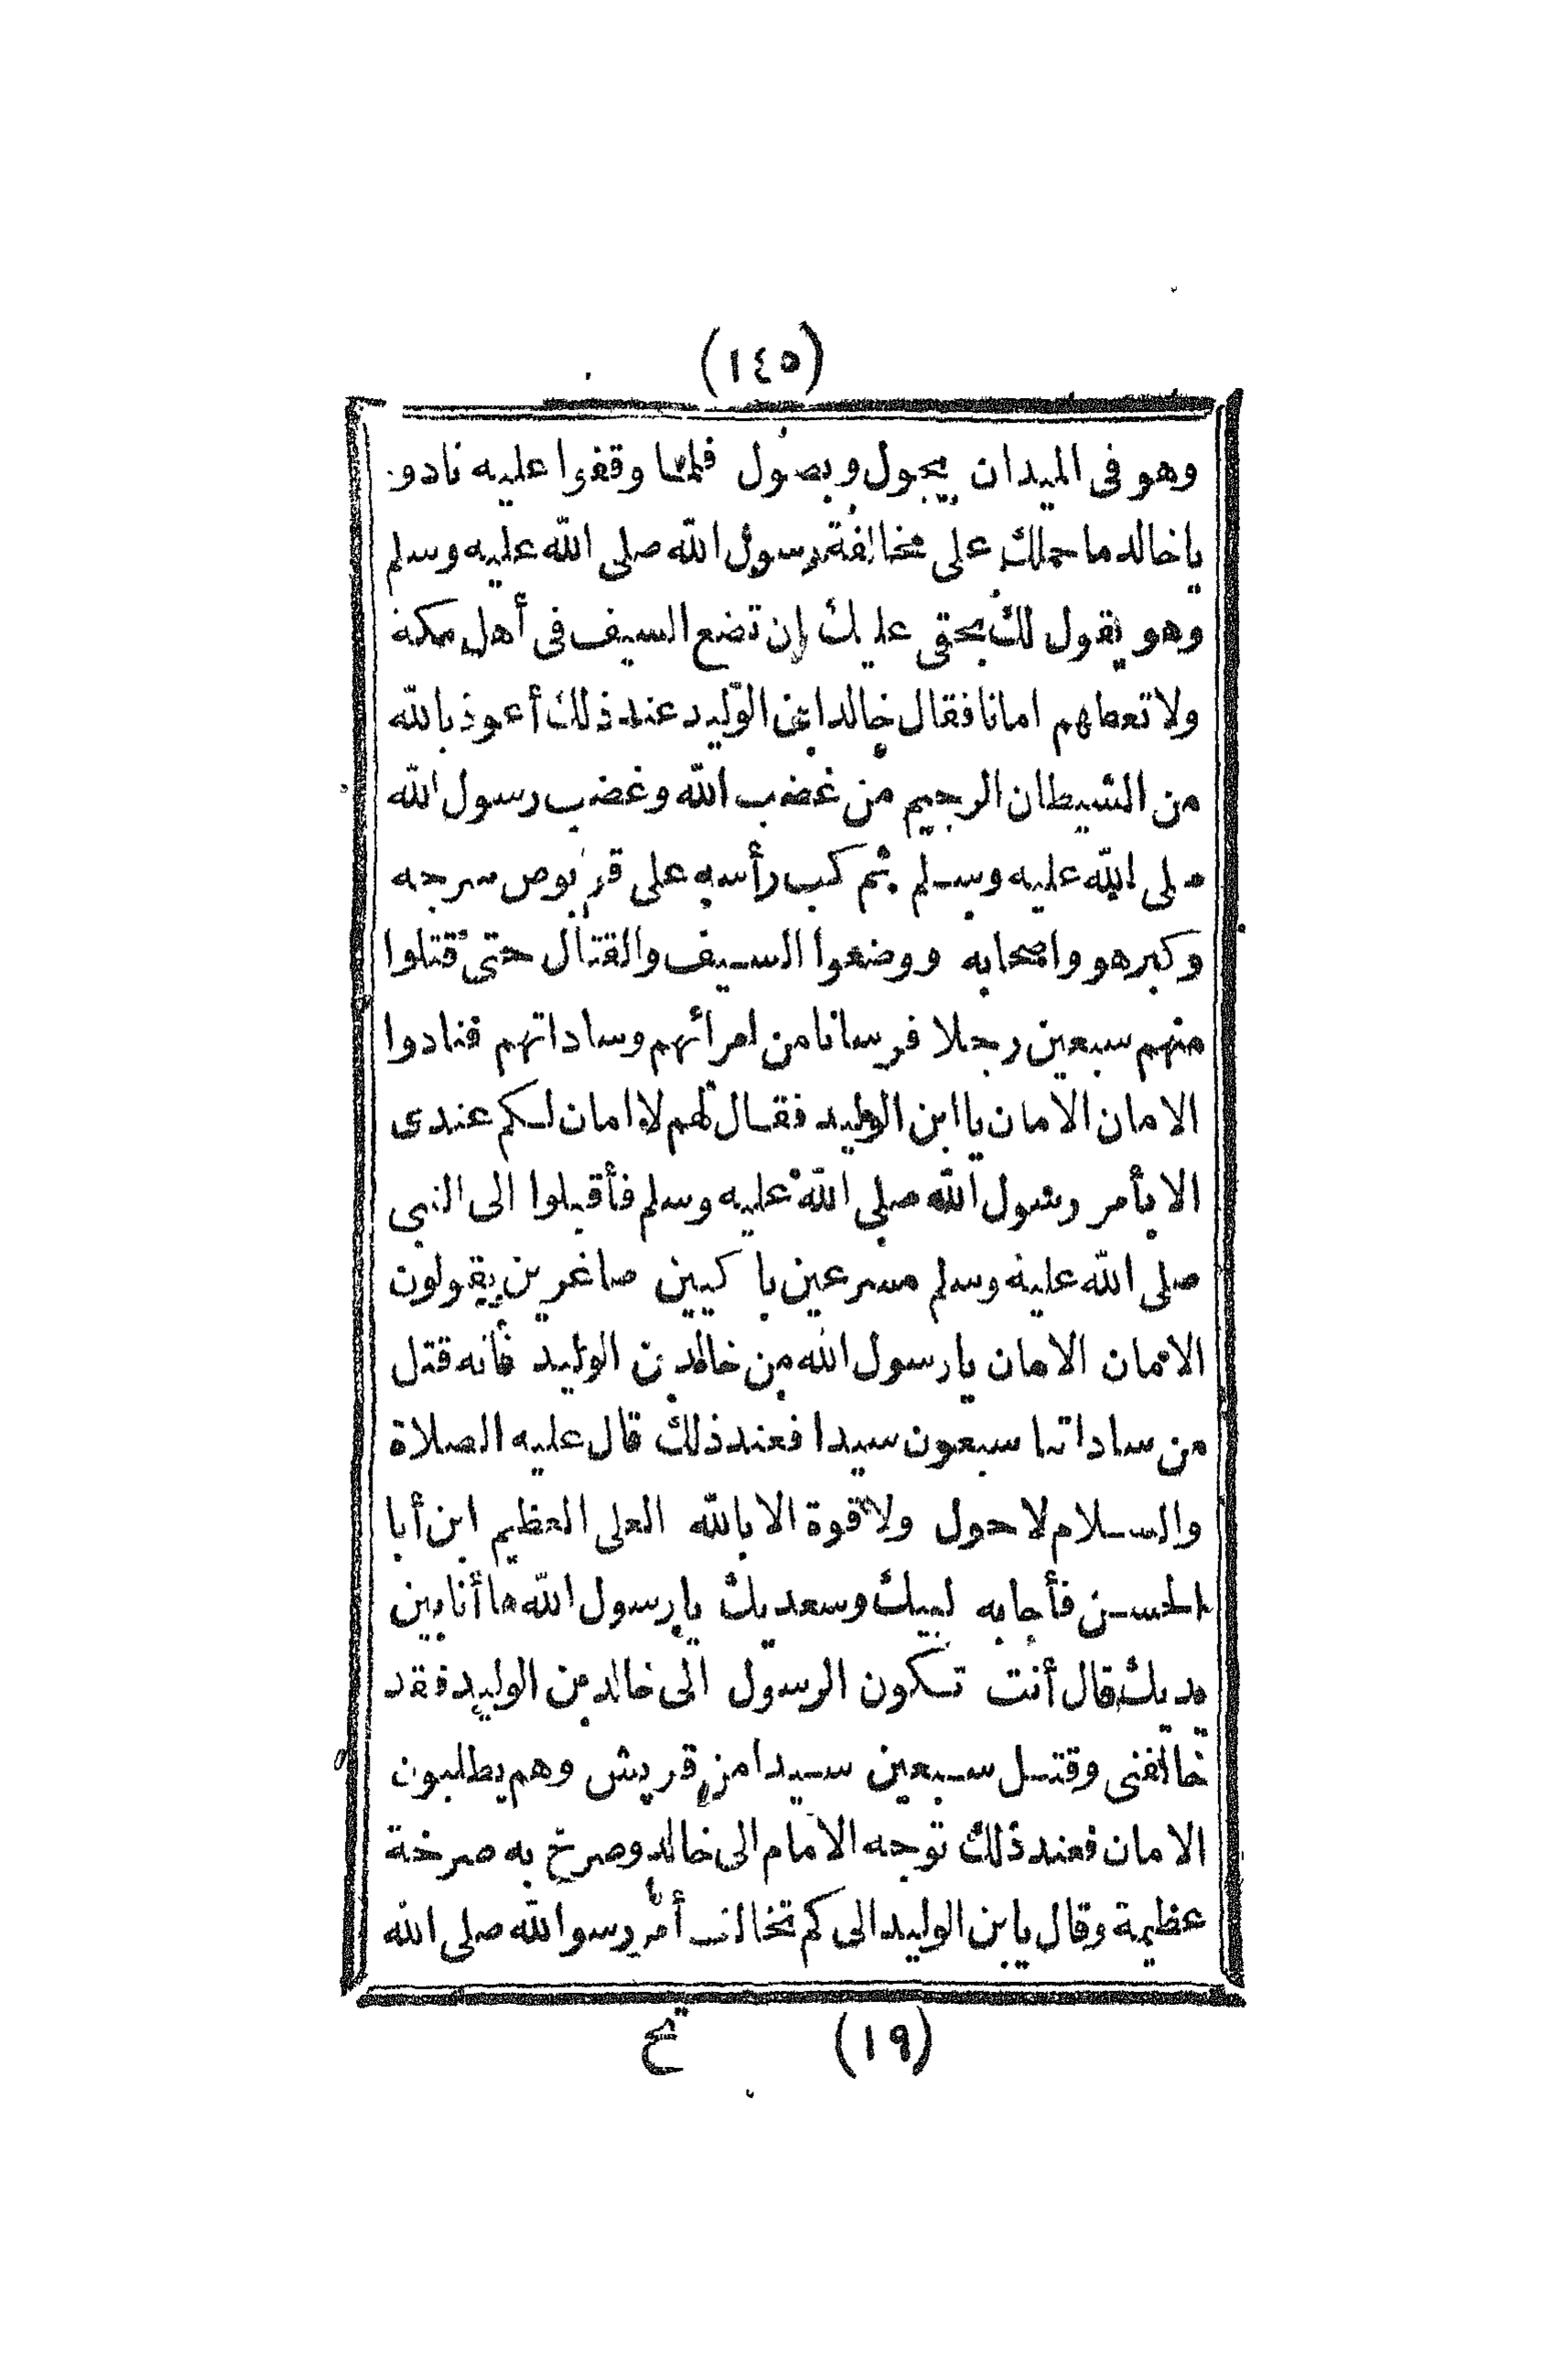 (١٤٥)
وهو فى الميدان يجول ويصول فلما وقفوا عليه نادو
ياخالد ماحملك على مخالفة رسول الله صلى الله عليه وسلم
وهو يقول لك بحقى عليك ان تضع السيف فى أهل مكة
ولا تعطهم امانا فقال خالد ابن الوليد عند ذلك أعوذ بالله
من الشيطان الرجيم من غضب الله وغضب رسول الله
صلى الله عليه وسلم ثم كب رأسه على قربوص سرجه
وكبر هو واصحابه ووضعوا السيف والقتال حتى قتلوا
منهم سبعين رجلا فرسانا من امرائهم وساداتهم فنادوا
الامان الامان ياابن الوليد فقال لهم لا امان لكم عندى
الا بأمر رسول الله صلى الله عليه وسلم فأقبلوا الى النبى
صلى الله عليه وسلم مسرعين باكيين صاغرين يقولون
الامان الامان يارسول الله من خالد بن الوليد فأنه قتل
من ساداتنا سبعون سيدا فعند ذلك قال عليه الصلاة
والسلام لا حول ولا قوة الا بالله العلى العظيم اين أبا
الحسن فأجابه لبيك وسعديك يارسول الله ها أنا بين
يديك قال أنت تكون الرسول الى خالد بن الوليد فقد
خالفنى وقتل سبعين سيدا من قريش وهم يطلبون
الامان فعند ذلك توجه الامام الى خالد وصرخ به صرخة
عظيمة وقال يابن الوليد الى كم تخالف أمر رسو الله صلى الله
(١٩) تح